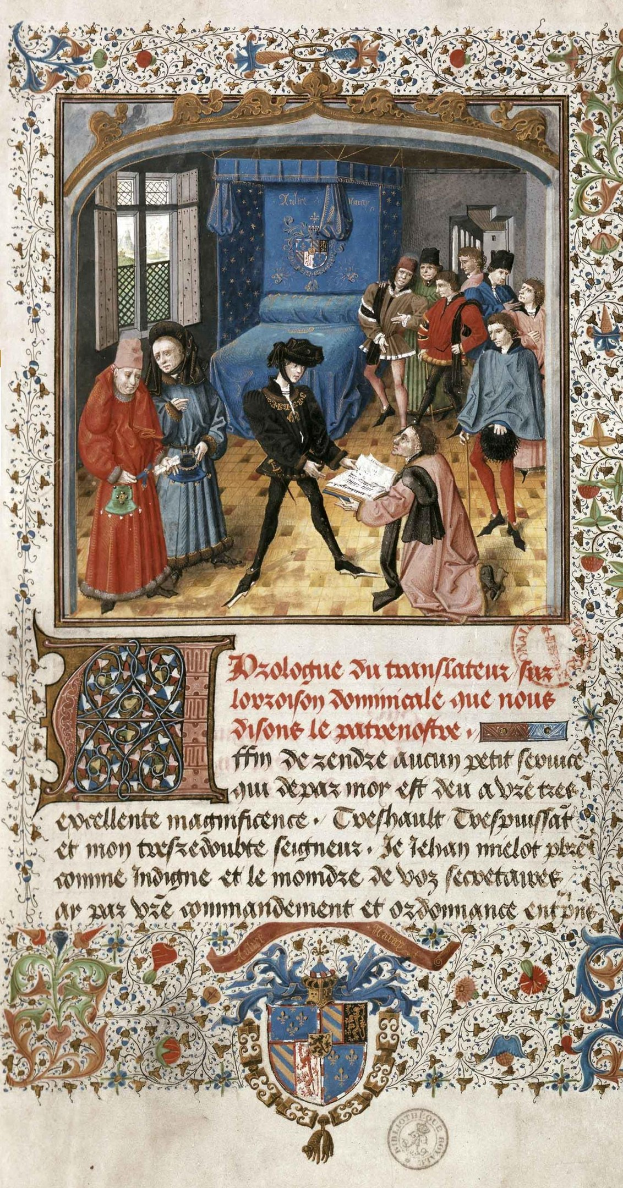 Aultre Naray
Prologue du translateur sur
lorroison dominicale que nous
disons le patrenostre .
Affin de rendre aucun petit seruice
qui depar moy est deu a vre tres
excellente magnificence . Treshault Trespuissāt
et mon tresredoubte seigneur . Je Jehan mielot pbre
comme Indigne et le moindre de voz secretaires
ay par vre commandement et ordonnance entrons
Aultre Naray
BIBLIOTHEQUE ROYALE